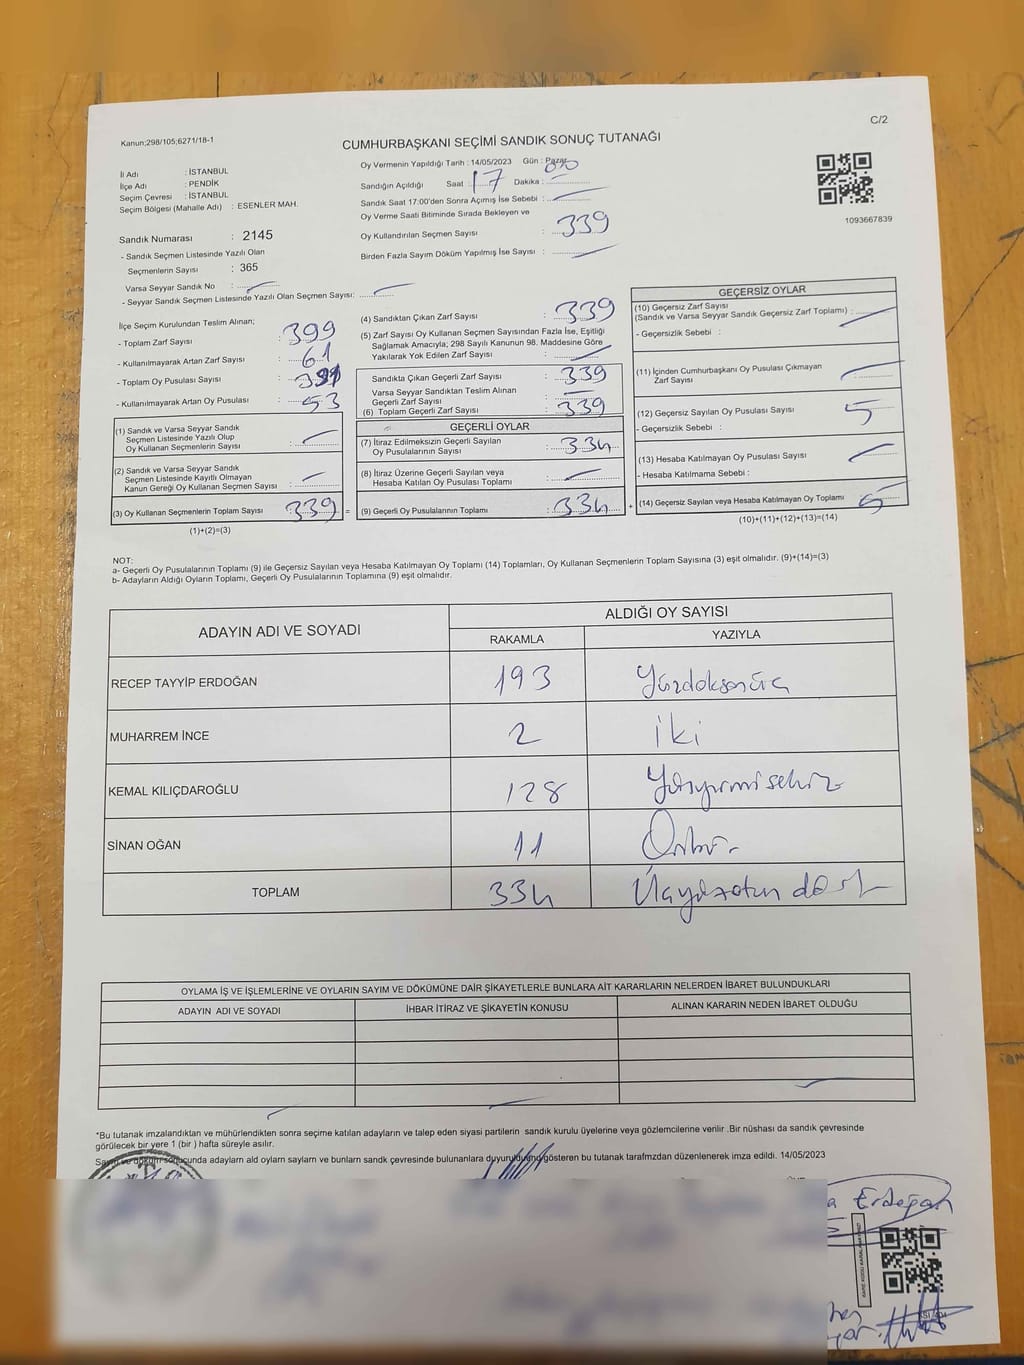 Kanun;298/105;6271/18-1
C/2
CUMHURBAŞKANI SEÇİMİ SANDIK SONUÇ TUTANAĞI
İl Adı : İSTANBUL
İlçe Adı : PENDİK
Seçim Çevresi : İSTANBUL
Seçim Bölgesi (Mahalle Adı) : ESENLER MAH.
Sandık Numarası : 2145
- Sandık Seçmen Listesinde Yazılı Olan
Seçmenlerin Sayısı : 365
Varsa Seyyar Sandık No :
- Seyyar Sandık Seçmen Listesinde Yazılı Olan Seçmen Sayısı:
Oy Vermenin Yapıldığı Tarih : 14/05/2023 Gün : Pazar
Sandığın Açıldığı Saat : 17 Dakika :
Sandık Saat 17:00'den Sonra Açımış İse Sebebi :
Oy Verme Saati Bitiminde Sırada Bekleyen ve
Oy Kullandırılan Seçmen Sayısı : 339
Birden Fazla Sayım Döküm Yapılmış İse Sayısı :
1093667839
İlçe Seçim Kurulundan Teslim Alınan;
- Toplam Zarf Sayısı : 399
- Kullanılmayarak Artan Zarf Sayısı : 61
- Toplam Oy Pusulası Sayısı :
- Kullanılmayarak Artan Oy Pusulası : 53
(1) Sandık ve Varsa Seyyar Sandık
Seçmen Listesinde Yazılı Olup
Oy Kullanan Seçmenlerin Sayısı :
(2) Sandık ve Varsa Seyyar Sandık
Seçmen Listesinde Kayıtlı Olmayan
Kanun Gereği Oy Kullanan Seçmen Sayısı :
(3) Oy Kullanan Seçmenlerin Toplam Sayısı : 339 =
(1)+(2)=(3)
(4) Sandıktan Çıkan Zarf Sayısı : 339
(5) Zarf Sayısı Oy Kullanan Seçmen Sayısından Fazla İse, Eşitliği
Sağlamak Amacıyla; 298 Sayılı Kanunun 98. Maddesine Göre
Yakılarak Yok Edilen Zarf Sayısı :
Sandıkta Çıkan Geçerli Zarf Sayısı : 339
Varsa Seyyar Sandıktan Teslim Alınan
Geçerli Zarf Sayısı :
(6) Toplam Geçerli Zarf Sayısı : 339
GEÇERLİ OYLAR
(7) İtiraz Edilmeksizin Geçerli Sayılan
Oy Pusulalarının Sayısı : 334
(8) İtiraz Üzerine Geçerli Sayılan veya
Hesaba Katılan Oy Pusulası Toplamı :
(9) Geçerli Oy Pusulalarının Toplamı : 334 +
GEÇERSİZ OYLAR
(10) Geçersiz Zarf Sayısı
(Sandık ve Varsa Seyyar Sandık Geçersiz Zarf Toplamı) :
- Geçersizlik Sebebi :
(11) İçinden Cumhurbaşkanı Oy Pusulası Çıkmayan
Zarf Sayısı :
(12) Geçersiz Sayılan Oy Pusulası Sayısı : 5
- Geçersizlik Sebebi :
(13) Hesaba Katılmayan Oy Pusulası Sayısı :
- Hesaba Katılmama Sebebi :
(14) Geçersiz Sayılan veya Hesaba Katılmayan Oy Toplamı : 5
(10)+(11)+(12)+(13)=(14)
NOT:
a- Geçerli Oy Pusulalarının Toplamı (9) ile Geçersiz Sayılan veya Hesaba Katılmayan Oy Toplamı (14) Toplamları, Oy Kullanan Seçmenlerin Toplam Sayısına (3) eşit olmalıdır. (9)+(14)=(3)
b- Adayların Aldığı Oyların Toplamı, Geçerli Oy Pusulalarının Toplamına (9) eşit olmalıdır.
ADAYIN ADI VE SOYADI
ALDIĞI OY SAYISI
RAKAMLA YAZIYLA
RECEP TAYYİP ERDOĞAN 193 Yüzdoksanüç
MUHARREM İNCE 2 iki
KEMAL KILIÇDAROĞLU 128 Yüzyirmisekiz
SİNAN OĞAN 11 Onbir
TOPLAM 334 Üçyüzotuzdört
OYLAMA İŞ VE İŞLEMLERİNE VE OYLARIN SAYIM VE DÖKÜMÜNE DAİR ŞİKAYETLERLE BUNLARA AİT KARARLARIN NELERDEN İBARET BULUNDUKLARI
ADAYIN ADI VE SOYADI İHBAR İTİRAZ VE ŞİKAYETİN KONUSU ALINAN KARARIN NEDEN İBARET OLDUĞU
*Bu tutanak imzalandıktan ve mühürlendikten sonra seçime katılan adayların ve talep eden siyasi partilerin sandık kurulu üyelerine veya gözlemcilerine verilir .Bir nüshası da sandık çevresinde
görülecek bir yere 1 (bir ) hafta süreyle asılır.
Sayım ve döküm sonucunda adayların ald oyların sayların ve bunların sandk çevresinde bulunanlara duyurulduğunu gösteren bu tutanak tarafmzdan düzenlenerek imza edildi. 14/05/2023
Erdoğan